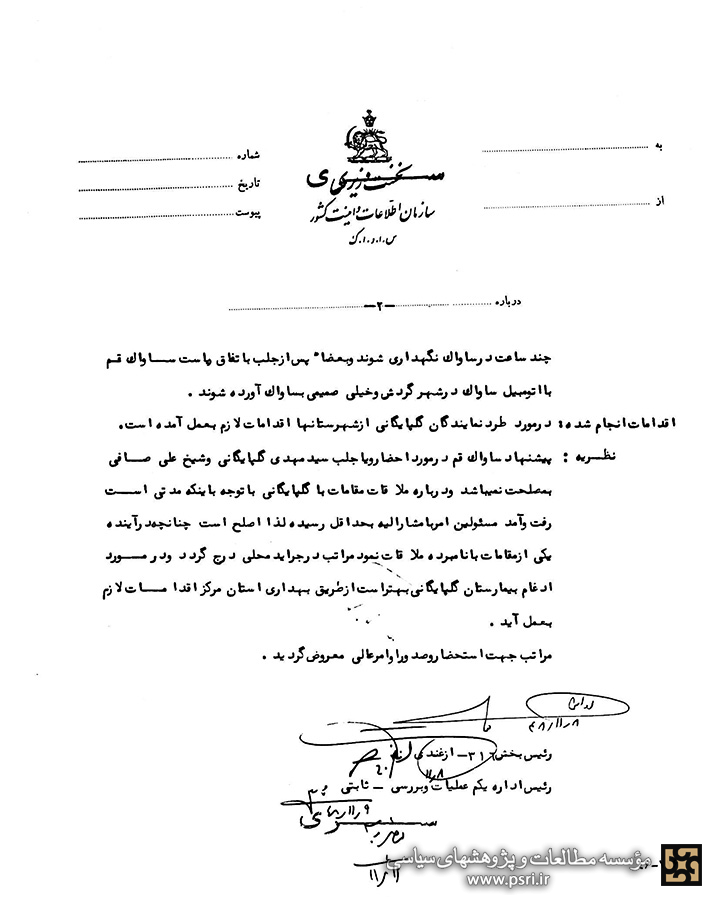 به
شماره
نخست وزیری
تاریخ
از
سازمان اطلاعات و امنیت کشور
پیوست
س.ا.و.ا.ک
درباره
-۲-
چند ساعت در ساواك نگهداری شوند وبعضا" پس از جلب با تفاق ریاست ســاواك قــم
با اتومبیل ساواك در شهر گردش وخیلی صمیمی بساواك آورده شوند .
اقدامات انجام شده : درمورد طرد نمایندگان گلپایگانی ازشهرستانها اقدامات لازم بعمل آمده است.
نظریه : پیشنهاد ساواك قم درمورد احضار ویا جلب سید مهدی گلپایگانی وشیخ علی صــافی
بمصلحت نمیباشد ودرباره ملا قات مقامات با گلپایگانی با توجه باینکه مدتی اســت
رفت وآمد مسئولین امر با مشارالیه بحداقل رسیده لذا اصلح است چنانچه درآینده
یکی ازمقامات با نامبرده ملا قات نمود مراتب درجراید محلی درج گردد ودر مــورد
ادغام بیمارستان گلپایگانی بهتراست ازطریق بهداری استان مرکز اقدا مــات لازم
بعمل آید .
مراتب جهت استحضار وصدور اوامرعالی معروض گردید .
۴۸/۱۱/۸
رئیس بخش ۳۱۶- ازغندی
۱۱/۸
رئیس اداره یکم عملیات وبررسی - ثابتی
ســـری
۱۱/۱۱
مؤسسه مطالعات و پژوهشهای سیاسی
www.psri.ir